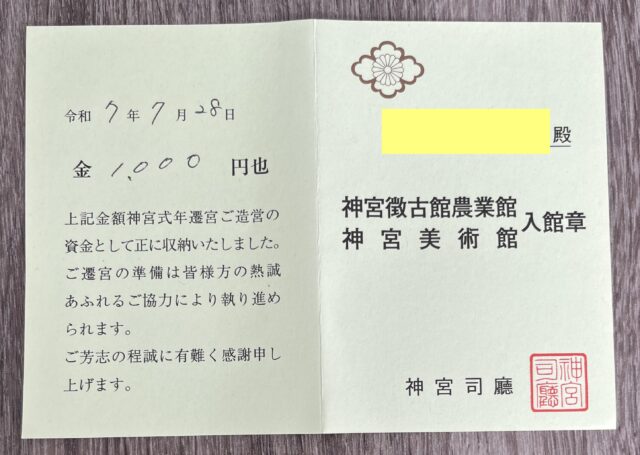 令和 7 年 7 月 28 日
金 1,000 円也
上記金額神宮式年遷宮ご造営の
資金として正に収納いたしました。
ご遷宮の準備は皆様方の熱誠
あふれるご協力により執り進め
られます。
ご芳志の程誠に有難く感謝申し
上げます。
殿
神宮徴古館農業館
神宮美術館
入館章
神宮司廳
神宮
司廳